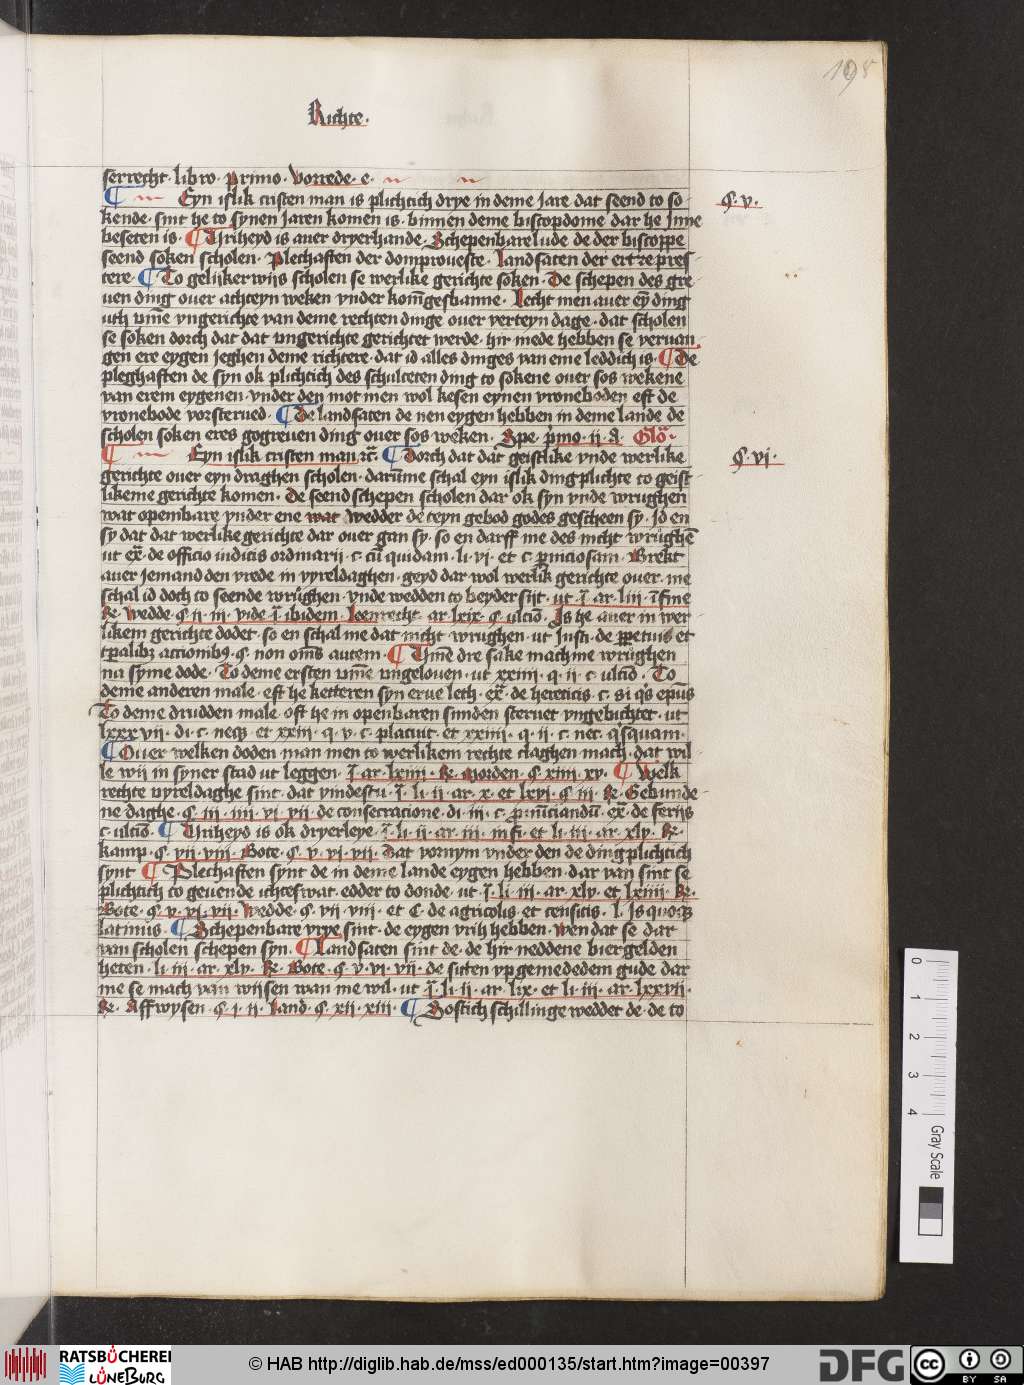 198
Richte.
serrecht. libro. primo. Vorrede. e.
¶ Eyn islik cristen man is plichtich drye in deme Jare dat seend to so
§. v.
kende. sint he to synen Jaren komen is. binnen deme biscopdome dar he Inne
beseten is. ¶ Vriheyd is auer dryerhande. Schepenbarelude de der biscoppe
seend soken scholen. Plechaften der domproueste. landsaten der ertzepres-
tere. ¶ To gelijkerwijs scholen se werlike gerichte soken. De schepen des gre-
uen ding ouer achteyn weken vnder koni̅gesbanne. Lecht men auer ey̅ ding
uth vm̅e vngerichte van deme rechten dinge ouer verteyn dage. dat scholen
se soken dorch dat dat vngerichte gerichtet werde. hir mede hebben se vervan-
gen ere eygen jeghen deme richtere. dat id alles dinges van eme leddich is. ¶ De
pleghaften de syn ok plichtich des schulteten ding to sokene ouer sos wekene
van erem eygenen. vnder den mot men wol kesen eynen vroneboden eft de
vronebode vorsterued. ¶ De landsaten de nen eygen hebben in deme lande de
scholen soken eres gogreuen ding ouer sos weken. Spe. p̅mo. ii. a. Glo̅.
¶ Eyn islik cristen man ꝛc̅. ¶ Dorch dat dat geistlike vnde werlike
§. vi.
gerichte ouer eyn draghen scholen. daru̅me schal eyn islik dingplichte to geist
likeme gerichte komen. De seend schepen scholen dar ok syn vnde wrughen
wat openbare vnder ene wat wedder de teyn gebod godes gescheen sy. Id en
sy dat dat werlike gerichte dar ouer gan sy. so en darff me des nicht wrughe̅
ut ex̅. de officio iudicis ordinarii. c. cu̅ quidam. li. vi. et c. p̅niciosam. Brekt
auer jemand den vrede in vyreldaghen. geyd dar wol werlik gerichte ouer. me
schal id doch to seende wrughen. vnde wedden to beyder sijt. ut. j̅. ar. liii. i̅ fine
Re. Wedde. §. ii. iii. vide. j̅. ibidem. Leenrecht. ar. lxix. §. ultio̅. Is he auer in wer
likem gerichte dodet. so en schal me dat nicht wrughen. ut Insti. de p̅petuis et
tp̅alibz actionibz. §. non om̅s autem. ¶ Vm̅e dre sake mach me wrughen
na syme dode. To deme ersten vm̅e vngelouen. ut xxiiii. q. ii. c. ultio̅. To
deme anderen male. eft he ketteren syn erue leth. ex̅. de hereticis. c. si q̅s ep̅us
To deme drudden male. oft he in openbaren sunden steruet vngebichtet. ut
lxxxvii. di. c. neq̅. et xxiii. q. v. c. placuit. et xxiiii. q. ii. c. nec. q̅squam.
¶ Ouer welken doden man men to werlikem rechte claghen mach. dat wil
le wii in syner stad ut leggen. j̅. ar. lxiiii. Re. Morden. §. xiiii. xv. ¶ Welk
rechte vyreldaghe sint. dat vindestu. j̅. li. ii. ar. x. et lxvi. §. iii. Re. Gebunde-
ne daghe. §. iii. iiii. vi. vii. de consecratione. di. iii. c. p̅nu̅ciandu̅. ex̅. de feriis
c. ultio̅. ¶ Vriheyd is ok dryerleye. j̅. li. ii. ar. iii. in fi. et li. iii. ar. xlv. Re.
kamp. §. vii. viii. Bote. §. v. vi. vii. Dat vornym vnder den de dingplichtich
synt ¶ Plechaften synt de in deme lande eygen hebben. dar van sint se
plichtich to geuende ichteswat. edder to donde. ut j̅. li. iii. ar. xlv. et lxiiii. Re.
Bote. §. v. vi. vii. Wedde. §. vii. viii. et C. de agricolis. et censitis. l. Is quoq̅
latimus. ¶ Schepenbare vrye sint. de eygen vrih hebben. Wen dat se dar
van scholen schepen syn. ¶ Landsaten sint de. de hir neddene biergelden
heten. li. iii. ar. xlv. Re. Bote. §. v. vi. vii. de sitten vp gemededem gude dar
me se mach van wijsen wan me wil. ut j̅. li. ii. ar. lix. et li. iii. ar. lxxvii.
Re. Affwysen. §. i. ii. Land. §. xii. xiii. ¶ Sostich schillinge weddet de. de to
0
1
2
3
4
Gray Scale
RATSBÜCHEREI
LÜNEBURG
© HAB http://diglib.hab.de/mss/ed000135/start.htm?image=00397
DFG
cc
BY SA